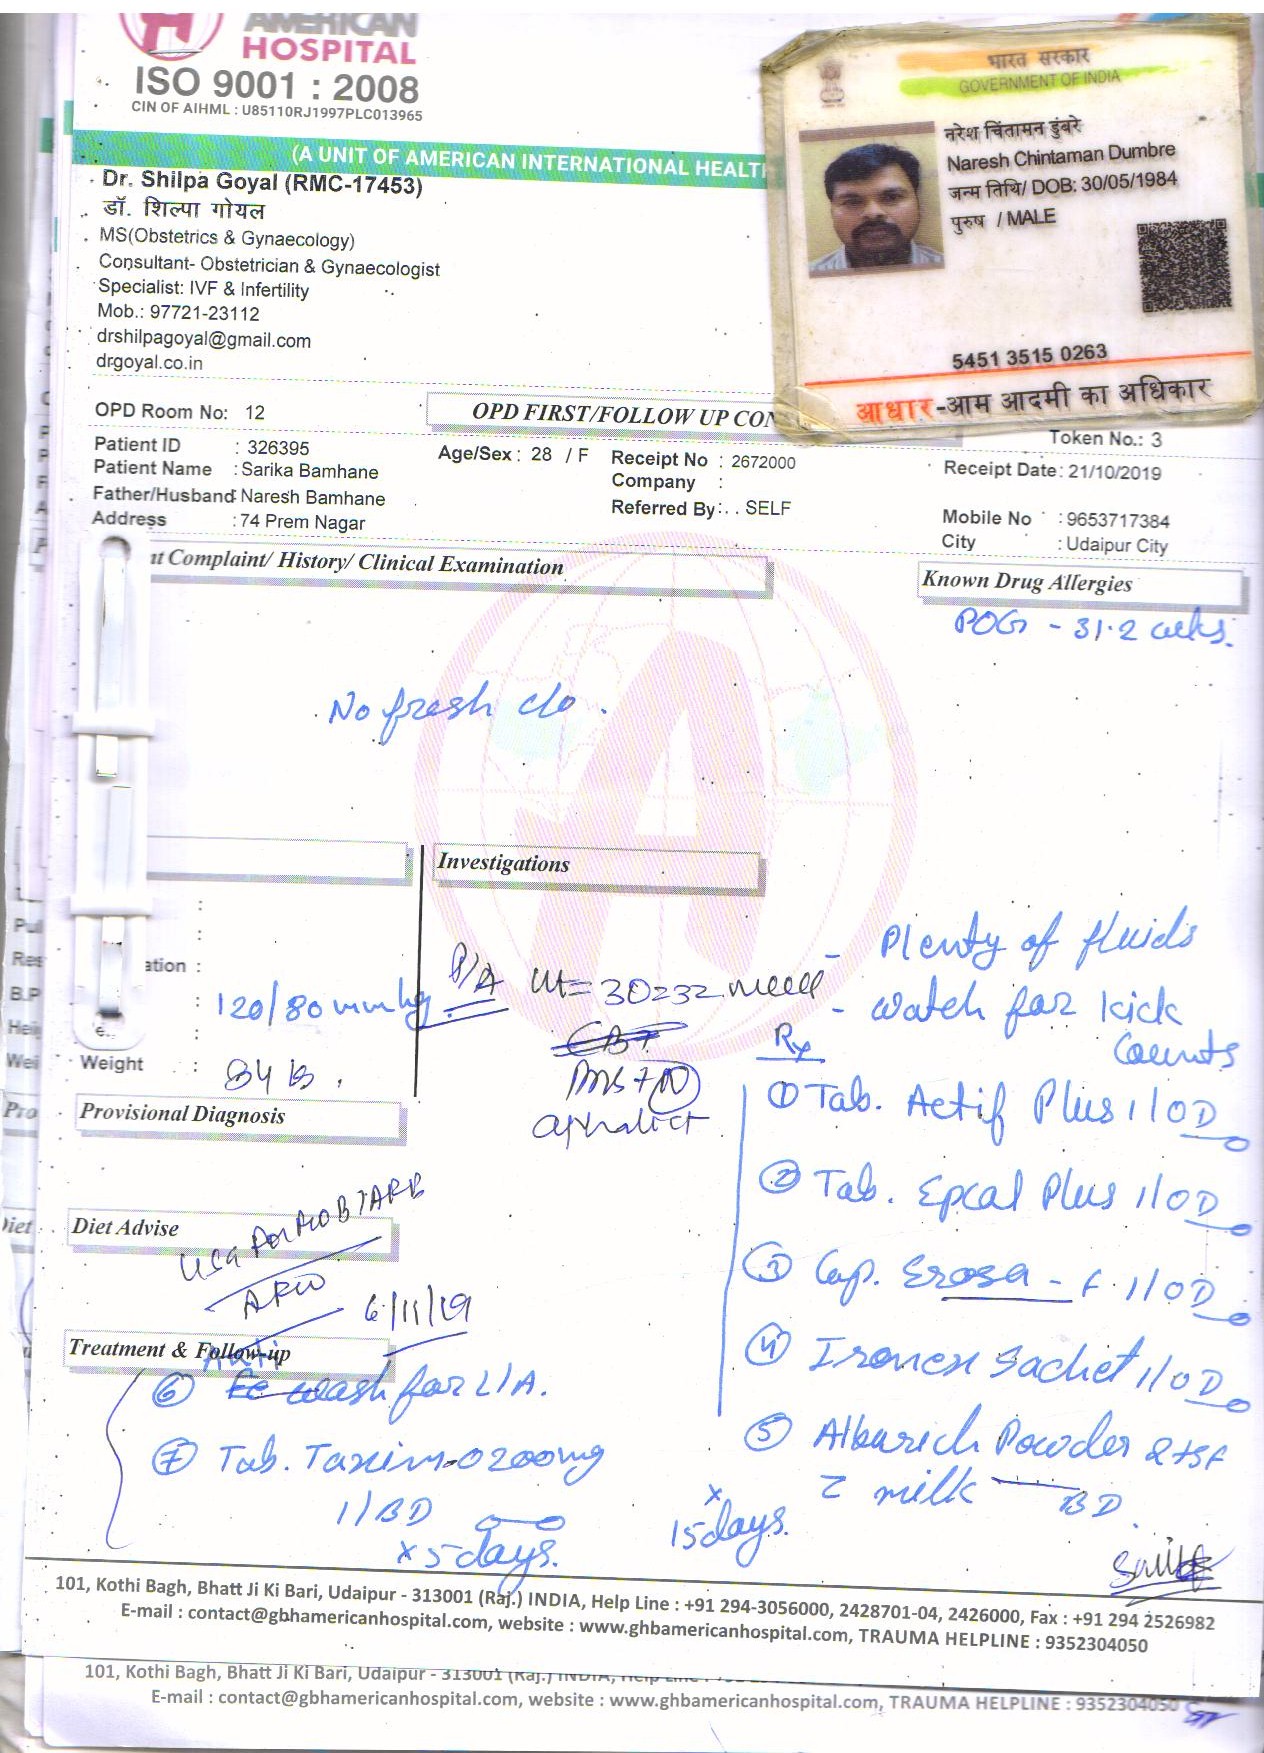 AMERICAN
HOSPITAL
ISO 9001 : 2008
CIN OF AIHML : U85110RJ1997PLC013965
(A UNIT OF AMERICAN INTERNATIONAL HEALTH
Dr. Shilpa Goyal (RMC-17453)
डॉ. शिल्पा गोयल
MS(Obstetrics & Gynaecology)
Consultant- Obstetrician & Gynaecologist
Specialist: IVF & Infertility
Mob.: 97721-23112
drshilpagoyal@gmail.com
drgoyal.co.in
भारत सरकार
GOVERNMENT OF INDIA
नरेश चिंतामन डुंबरे
Naresh Chintaman Dumbre
जन्म तिथि/ DOB: 30/05/1984
पुरुष / MALE
5451 3515 0263
आधार-आम आदमी का अधिकार
OPD Room No: 12
OPD FIRST/FOLLOW UP CON
Token No.: 3
Patient ID : 326395
Age/Sex : 28 / F
Receipt No : 2672000
Receipt Date: 21/10/2019
Patient Name : Sarika Bamhane
Company :
Father/Husband: Naresh Bamhane
Referred By: . . SELF
Mobile No : 9653717384
Address : 74 Prem Nagar
City : Udaipur City
nt Complaint/ History/ Clinical Examination
Known Drug Allergies
POG - 31.2 wks.
No fresh c/o.
Investigations
- Plenty of fluids
- watch for kick
Counts
ation :
: 120/80 mmhg
P/A Ut = 30-32 week
Weight :
Rx
① Tab. Actif Plus 1/OD
② Tab. Epcal Plus 1/OD
③ Cap. Erosa - F. 1/OD
④ Ironex Sachet 1/OD
⑤ Albarich Powder 2tsf
c milk BD.
x 15days.
Provisional Diagnosis
Diet Advise
6/11/19
Treatment & Follow-up
⑥ wash for L/A.
⑦ Tab. Taxim-O 200mg
1/BD
x 5 days.
101, Kothi Bagh, Bhatt Ji Ki Bari, Udaipur - 313001 (Raj.) INDIA, Help Line : +91 294-3056000, 2428701-04, 2426000, Fax : +91 294 2526982
E-mail : contact@gbhamericanhospital.com, website : www.ghbamericanhospital.com, TRAUMA HELPLINE : 9352304050
101, Kothi Bagh, Bhatt Ji Ki Bari, Udaipur - 313001 (Raj.) INDIA, Help Line :
E-mail : contact@gbhamericanhospital.com, website : www.ghbamericanhospital.com, TRAUMA HELPLINE : 9352304050